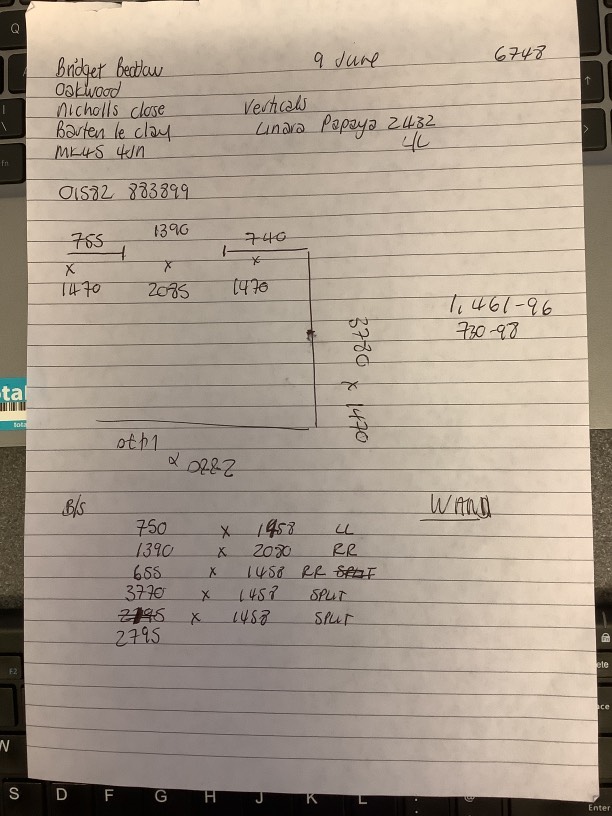 9 June
6748
Bridget Bedlow
Oakwood
Nicholls close
Barten le clay
MK45 4JN
Verticals
Unara Papaya 2432
4L
01582 883899
765
1390
740
x
x
x
1470
2085
1470
3780 x 1470
1,461-96
730-98
2820 x
1470
B/S
WAND
750 x 1458 LL
1390 x 2080 RR
655 x 1458 RR SPLIT
3770 x 1458 SPLIT
2795 x 1458 SPLIT
2795